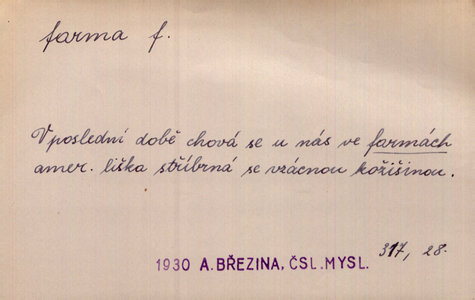 farma f.
V poslední době chová se u nás ve farmách
amer. liška stříbrná se vzácnou kožišinou.
317, 28.
1930 A. BŘEZINA, ČSL. MYSL.